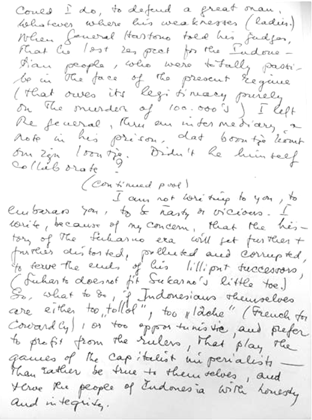 Could I do, to defend a great man.
Whatever where his weaknesses (ladies)
When General Hartono told his judges,
That he lost respect for the Indone-
sian people, who were totally passi-
be in the face of the present regime
(that owes its legitimacy purely
on the murder of 100.000's) I left
the general, thru an intermediary, a
note in his prison, dat boontje komt
om zijn loontje. Didn't he himself
collaborate?
(continued pool)
I am not writing to you, to
embarass you, to be nasty or vicious. I
write, because of my concern, that the his-
tory of the Sukarno era will get further +
further distorted, polluted and corrupted,
to serve the ends of his lilliput successors,
(Suharto doesnot fit Sukarno's little toe)
So, what to do, if Indonesians themselves
are either too "tollol", too "lâche" (French for
cowardly), or too opportunistic, and prefer
to profit from the rulers, that play the
games of the capitalist imperialists -
than rather be true to themselves, and
serve the people of Indonesia with honesty
and integrity.